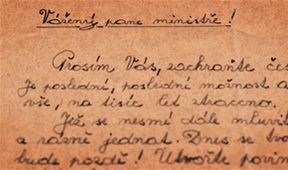 Vážený pane ministře!
Prosím Vás, zachraňte čes
Je poslední, poslední možnost a
vše, na tisíc let ztraceno.
Již se nesmé dále mluvit
a rázně jednat. Dnes se tvo
bude pozdě! Utvořte povin